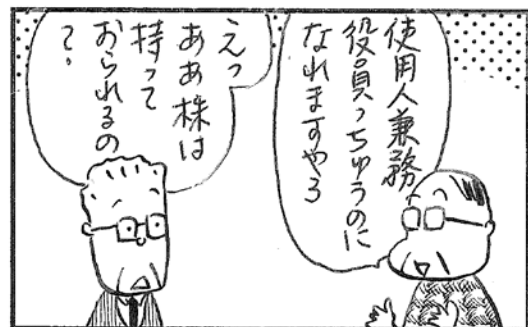 使用人兼務
役員っちゅうのに
なれますやろ
えっ
ああ株は
持って
おられるの
で。